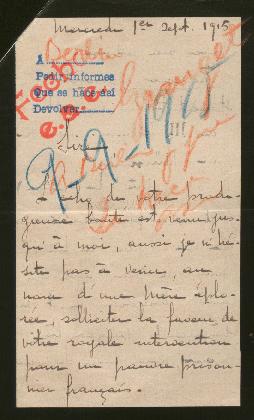 Mercredi 1er Sept. 1915
A Berlin
Pedir informes
Que se hace así
Devolver
9-9-1915
III
Sire
L'écho de votre prodi-
gieuse bonté est venu jus-
qu'à moi, aussi je n'hé-
site pas à venir, au
nom d'une mère éplo-
rée, solliciter la faveur de
votre royale intervention
pour un pauvre prison-
nier français.